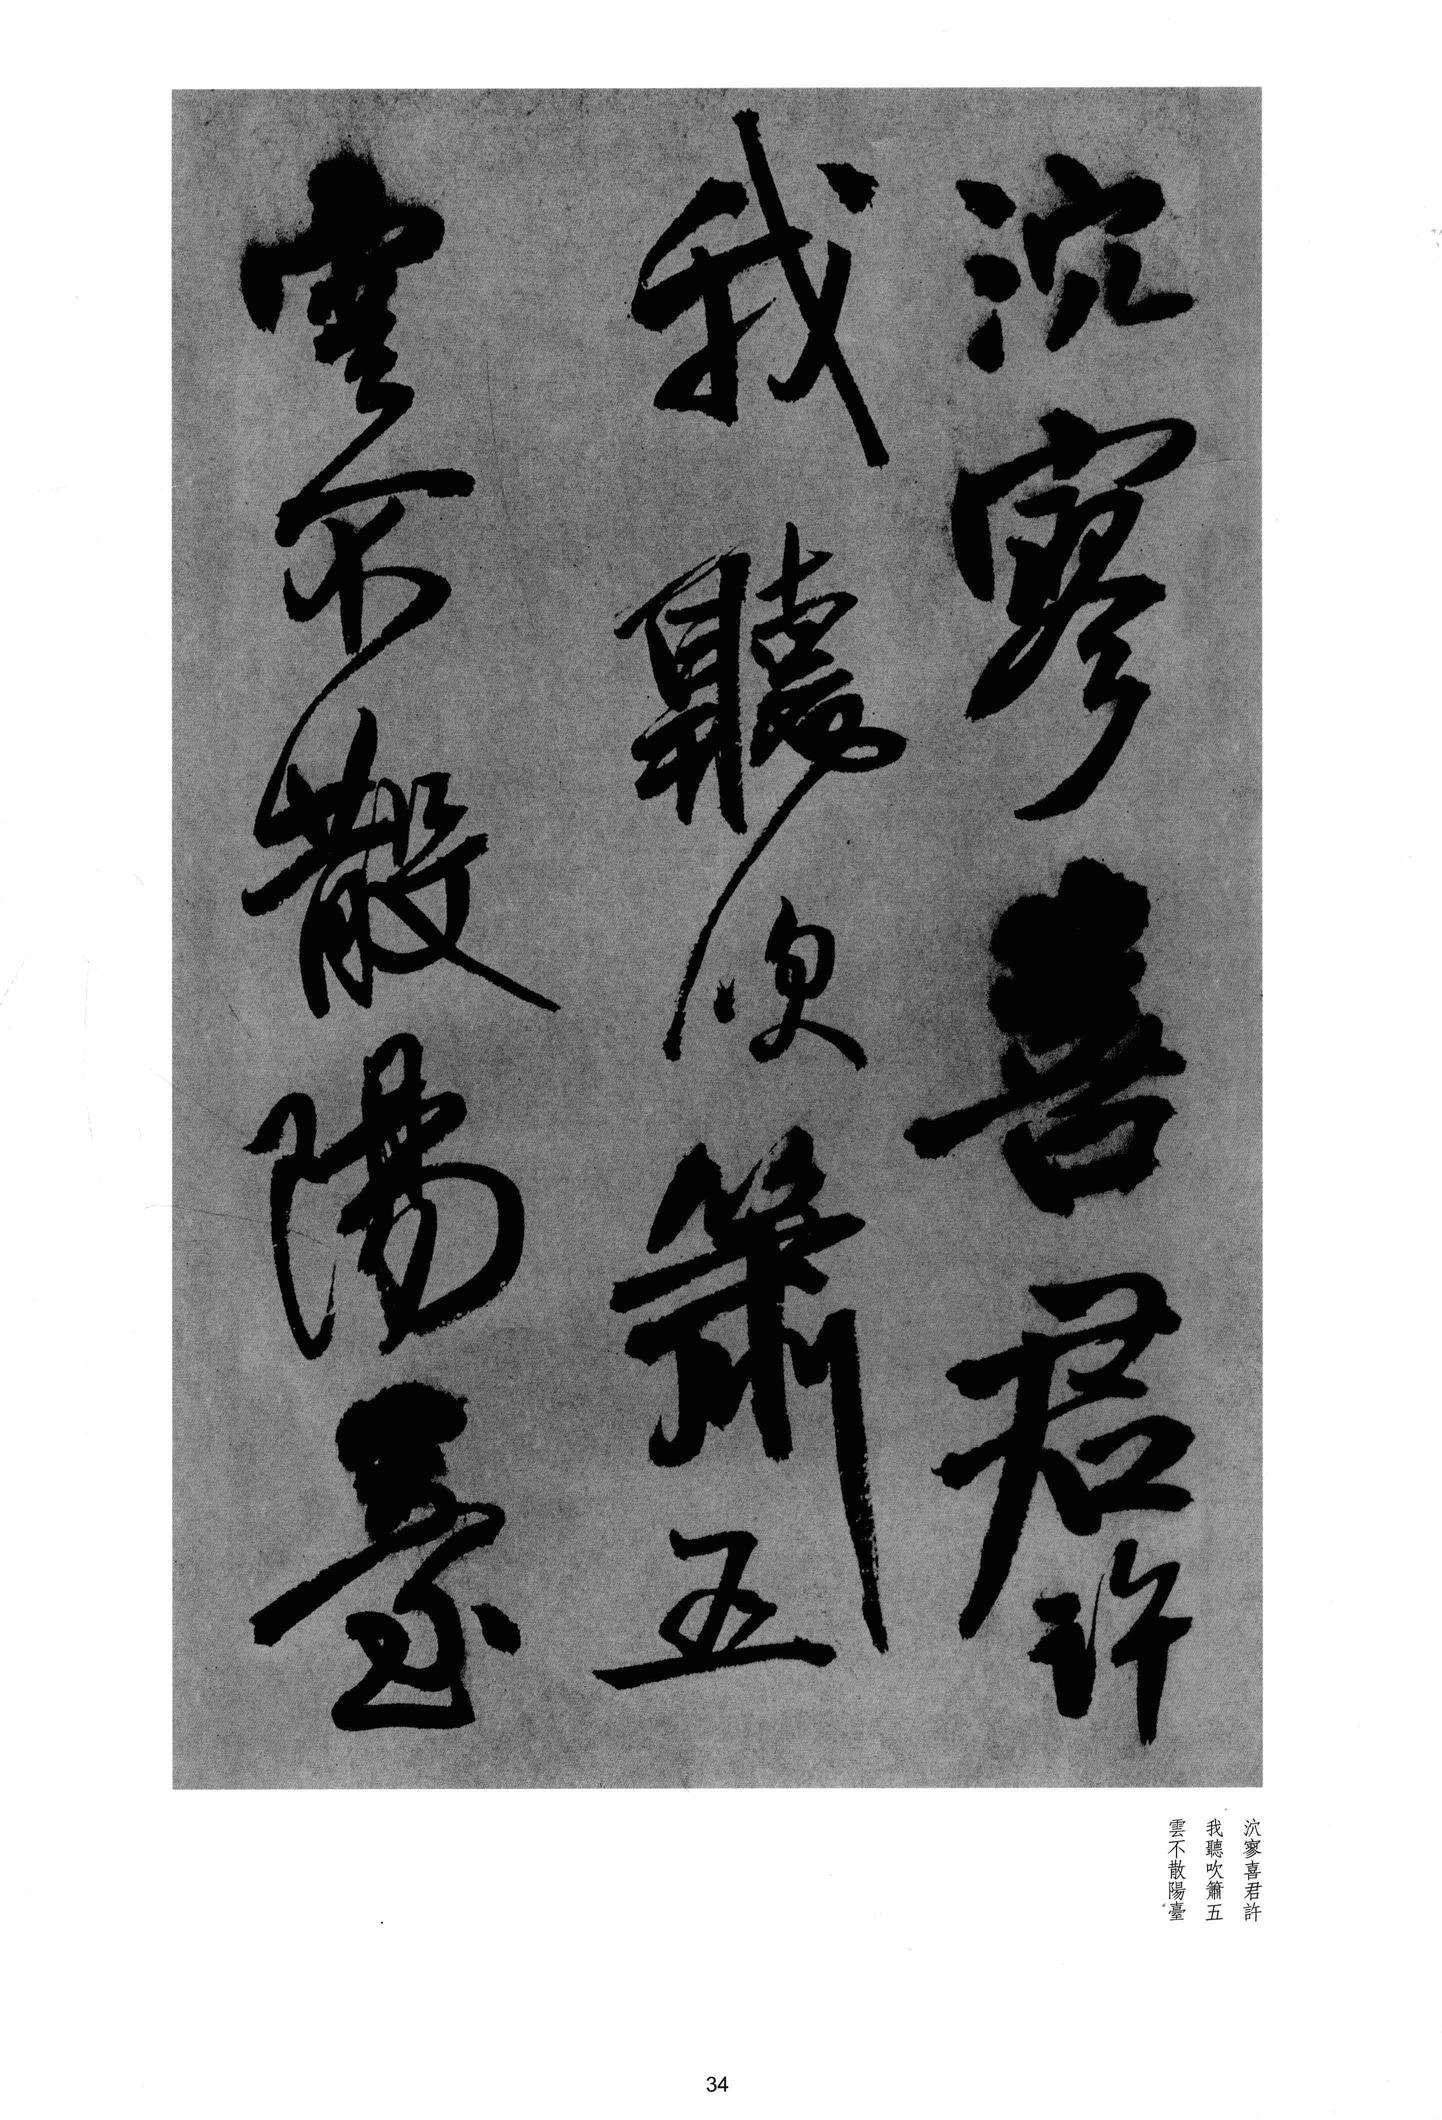 泬寥喜君許
我聽吹簫五
雲不散陽臺
泬寥喜君許
我聽吹簫五
雲不散陽臺
34